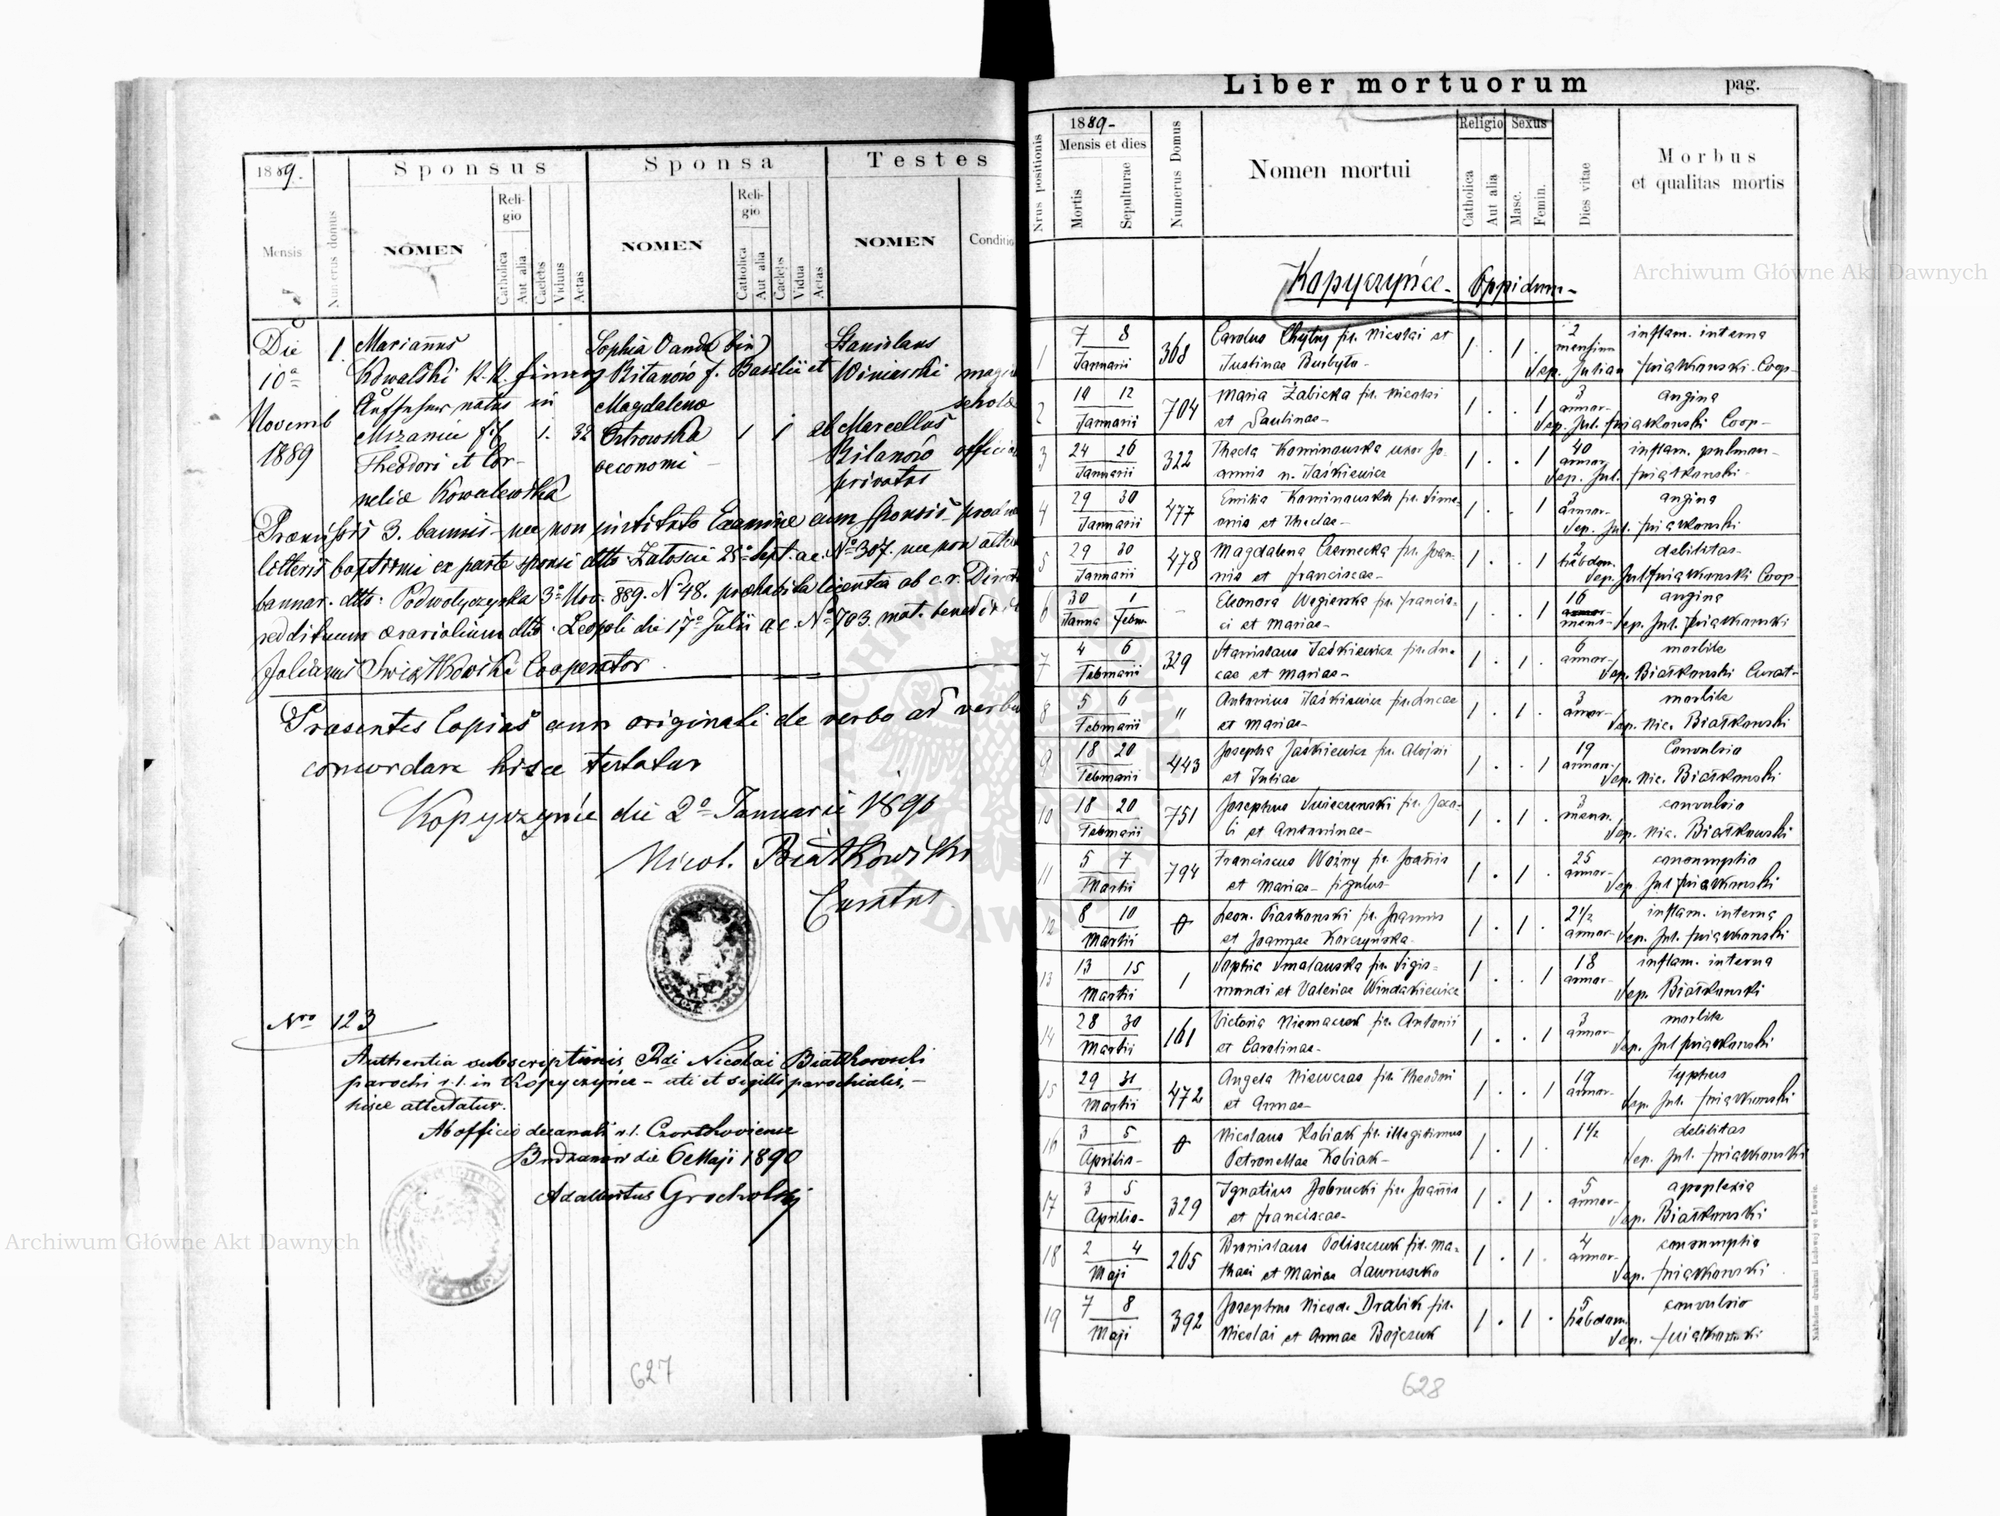 1889.
Sponsus
Sponsa
Testes
Mensis
Numerus domus
NOMEN
Religio
Catholica
Aut alia
Caelebs
Viduus
Aetas
NOMEN
Religio
Catholica
Aut alia
Caelebs
Vidua
Aetas
NOMEN
Conditio
Die 1. Marianus Sophia Vanda Stanislaus
10a Kowalski K. K. Finanz f. Basilii et
Aufseher natus in Magdalena
Novemb f. 1. 32 Ostrowska 1 1 et Marcellus
1889 Theodori et Cor- oeconomi privatus
neliae Kowalewska
Praemissis 3. bannis nec non instituto Examine cum sponsis
litteris baptismi ex parte sponsi dtto Załosce 25o Sept. a.c. No 307. nec non
bannor. dtto. Podwołyczyska 3o Nov. 889. No 48. licentia ab c. r.
dtto. Leopoli die 17o Julii a.c. No 703. mat. bened
Julianus Swiątkowski Cooperator
Praesentes Copias cum originali de verbo ad verbum
concordare hisce testatur
Kopyczyńce die 2o Januarii 1890
Nicol. Białkowski
Curatus
Nro 123
Authentia subscriptionis Rdi Nicolai Białkowski
parochi r. l. in Kopyczyńce – uti et sigilli parochialis, –
hisce attestatur.
Ab officio decanali r. l. Czortkoviense
Budzanow die 6 Maji 1890
Adalbertus Grocholski
627
Liber mortuorum pag.
Nrus positionis
1889
Mensis et dies
Mortis
Sepulturae
Numerus Domus
Nomen mortui
Religio
Catholica
Aut alia
Sexus
Masc.
Femin.
Dies vitae
Morbus
et qualitas mortis
Kopyczyńce – Oppidum –
1 7 8 Januarii 368 Carolus fil. Nicolai et 1 . 1 . 2 mensium inflam. interna
Justinae Sep. Julian Swiątkowski Coop
2 10 12 Januarii 704 Maria Żabicka fil. Nicolai 1 . . 1 3 annor. angina
et Paulinae Sep. Jul. Swiątkowski Coop
3 24 26 Januarii 322 Thecla Kominowska uxor Jo- 1 . . 1 40 annor. inflam. pulmon
annis n. Jaśkiewicz Sep. Jul. Swiątkowski
4 29 30 Januarii 477 Emilia Kominowska fil. Sime- 1 . . 1 3 annor. angina
onis et Theclae Sep. Jul. Swiątkowski
5 29 30 Januarii 478 Magdalena Czernecka fil. Joan- 1 . . 1 2 hebdom. debilitas
nis et Franciscae Sep. Jul. Swiątkowski Coop
6 30 1 Janua Febru – Eleonora Węgierska fil. Francis- 1 . . 1 16 mens. angina
ci et Mariae Sep. Jul. Swiątkowski
7 4 6 Februarii 329 Stanislaus Jaśkiewicz fil. Lu- 1 . 1 . 6 annor. morbile
cae et Mariae Sep. Białkowski Curat
8 5 6 Februarii " Antonius Jaśkiewicz fil. Lucae 1 . 1 . 3 annor. morbile
et Mariae Sep. Nic. Białkowski
9 18 20 Februarii 443 Josepha Jaśkiewicz fil. Alojsii 1 . . 1 19 annor. Convulsio
et Juliae Sep. Nic. Białkowski
10 18 20 Februarii 751 Josephus fil. Jaco- 1 . 1 . 3 mens. convulsio
bi et Antoninae Sep. Nic. Białkowski
11 5 7 Martii 794 Franciscus Woźny fil. Joannis 1 . 1 . 25 annor. consumptio
et Mariae – figulus Sep. Jul Swiątkowski
12 8 10 Martii 0 Leon. Piaskowski fil. Joannis 1 . 1 . 2 1/2 annor. inflam. interna
et Joannae Korczyńska Sep. Jul. Swiątkowski
13 13 15 Martii 1 Sophia Smalawska fil. Sigis- 1 . . 1 18 annor. inflam. interna
mundi et Valeriae Windakiewicz Sep. Białkowski
14 28 30 Martii 161 Victoria Niemaczek fil. Antonii 1 . . 1 3 annor. morbile
et Carolinae Sep. Jul Swiątkowski
15 29 31 Martii 472 Angela fil. Theodori 1 . . 1 19 annor. typhus
et Annae Sep. Jul. Swiątkowski
16 3 5 Aprilis 0 Nicolaus Kobiak fil. illegitimus 1 . 1 . 1 1/2 debilitas
Petronellae Kobiak Sep. Jul. Swiątkowski
17 3 5 Aprilis 329 Ignatius Dobrucki fil. Joannis 1 . 1 . 5 annor. apoplexia
et Franciscae Sep. Białkowski
18 2 4 Maji 265 Bronislaus Poliszczuk fil. Ma- 1 . 1 . 4 annor. consumptio
thaei et Mariae Ławruszko Sep. Swiątkowski
19 7 8 Maji 392 Josephus Nicod. Drabik fil. 1 . 1 . 5 hebdom. convulsio
Nicolai et Annae Bojczuk Sep. Swiątkowski
628
Nakładem drukarni Ludowej we Lwowie.
Archiwum Główne Akt Dawnych
Archiwum Główne Akt Dawnych